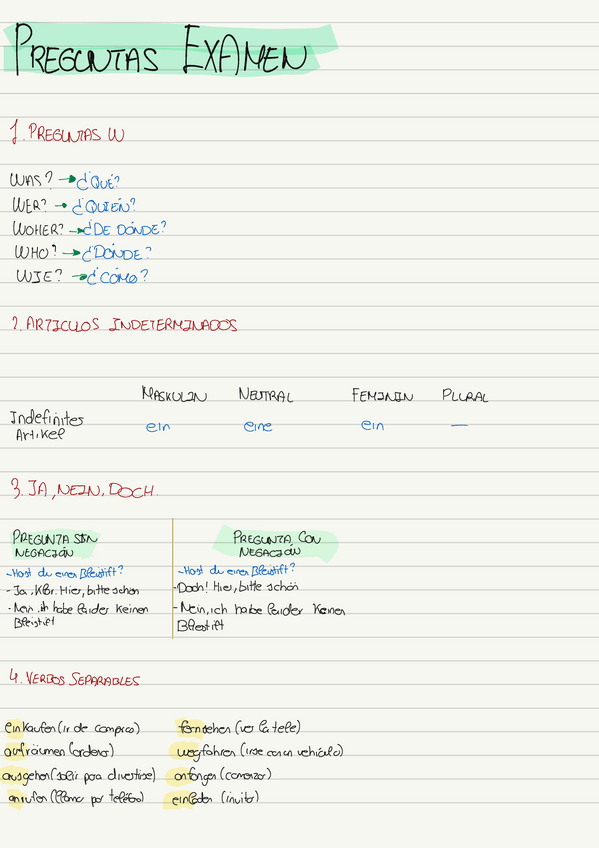 PREGUNTAS EXAMEN
1. PREGUNTAS W
WAS? → ¿QUÉ?
WER? → ¿QUIÉN?
WOHER? → ¿DE DÓNDE?
WHO? → ¿DÓNDE?
WIE? → ¿CÓMO?
2. ARTICULOS INDETERMINADOS
MASKULIN NEUTRAL FEMININ PLURAL
Indefinites
Artikel ein eine ein —
3. JA, NEIN, DOCH.
PREGUNTA SIN
NEGACIÓN
- Hast du einen Bleistift?
- Ja, Klar. Hier, bitte schön
- Nein, ich habe leider Keinen
Bleistift
PREGUNTA CON
NEGACIÓN
- Hast du einen Bleistift?
- Doch! Hier, bitte schön
- Nein, ich habe leider Keinen
Bleistift
4. VERBOS SEPARABLES
einkaufen (ir de compras) fernsehen (ver la tele)
aufräumen (ordenar) wegfahren (irse con un vehículo)
ausgehen (salir para divertirse) anfangen (comenzar)
anrufen (llamar por teléfono) einladen (invitar)